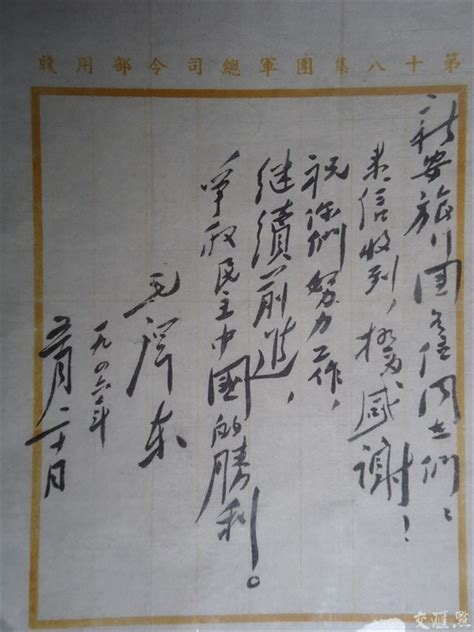 第十八集團軍總司令部用牋
新安旅行團各位同志們：
来信收到，極為感謝！
祝你們努力工作，
继續前進，
爭取民主中國的勝利。
毛澤东
一九四六年
五月二十日
交匯點